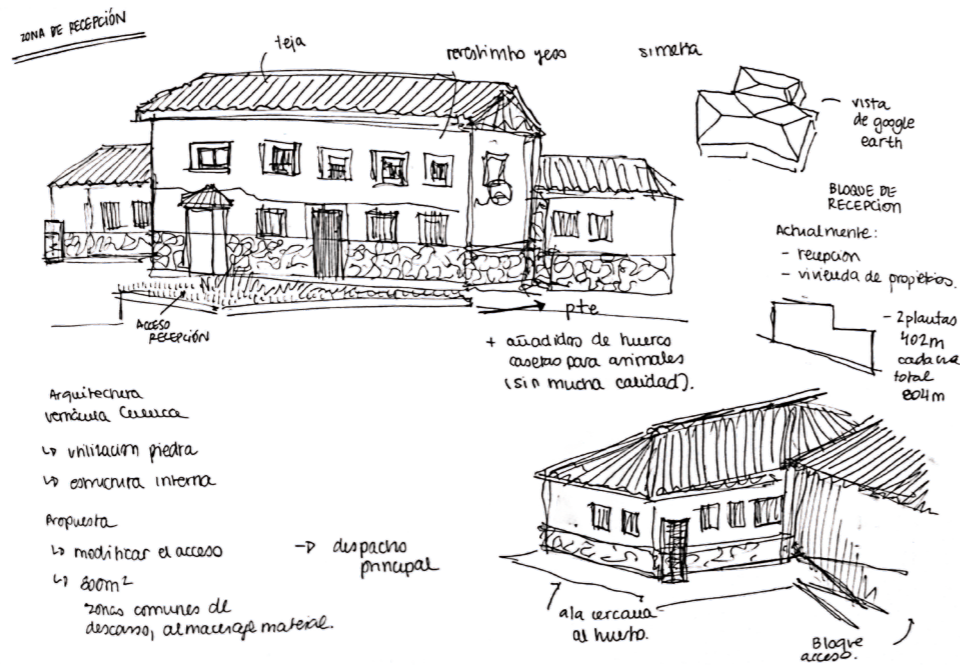 ZONA DE RECEPCIÓN
teja
yeso
simetria
vista
de google
earth
BLOQUE DE
RECEPCION
Actualmente:
- recepcion
- vivienda de propietarios.
- 2 plantas
402m
cada una
total
804m
ACCESO
RECEPCIÓN
pte
+ añadidos de huerco
casetas para animales
(sin mucha calidad).
Arquitectura
vernácula Cuenca
↳ utilización piedra
↳ estructura interna
Propuesta
↳ modificar el acceso
→ despacho
principal
↳ 800m²
zonas comunes de
descanso, almacenaje material.
ala cercana
al huerto.
Bloque
acceso.